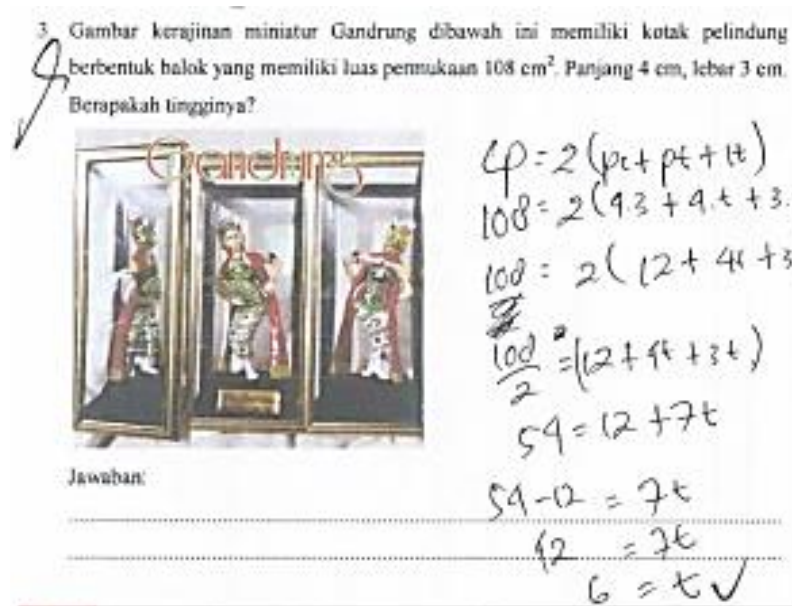 3 Gambar kerajinan miniatur Gandrung dibawah ini memiliki kotak pelindung
berbentuk balok yang memiliki luas permukaan 108 cm². Panjang 4 cm, lebar 3 cm.
Berapakah tingginya?
Gandrung
Lp = 2 (pl + pt + lt)
108 = 2 (4.3 + 4.t + 3.
108 = 2 (12 + 4t + 3
108/2 = (12 + 4t + 3t)
54 = 12 + 7t
Jawaban:
54 - 12 = 7t
42 = 7t
6 = t ✓